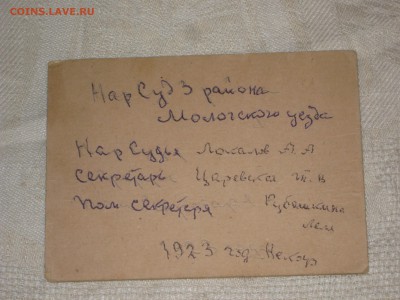 COINS.LAVE.RU
НарСуд 3 района
Мологского уезда
НарСудья Локалов А А
Секретарь Царевская
Пом секретаря
1923 год